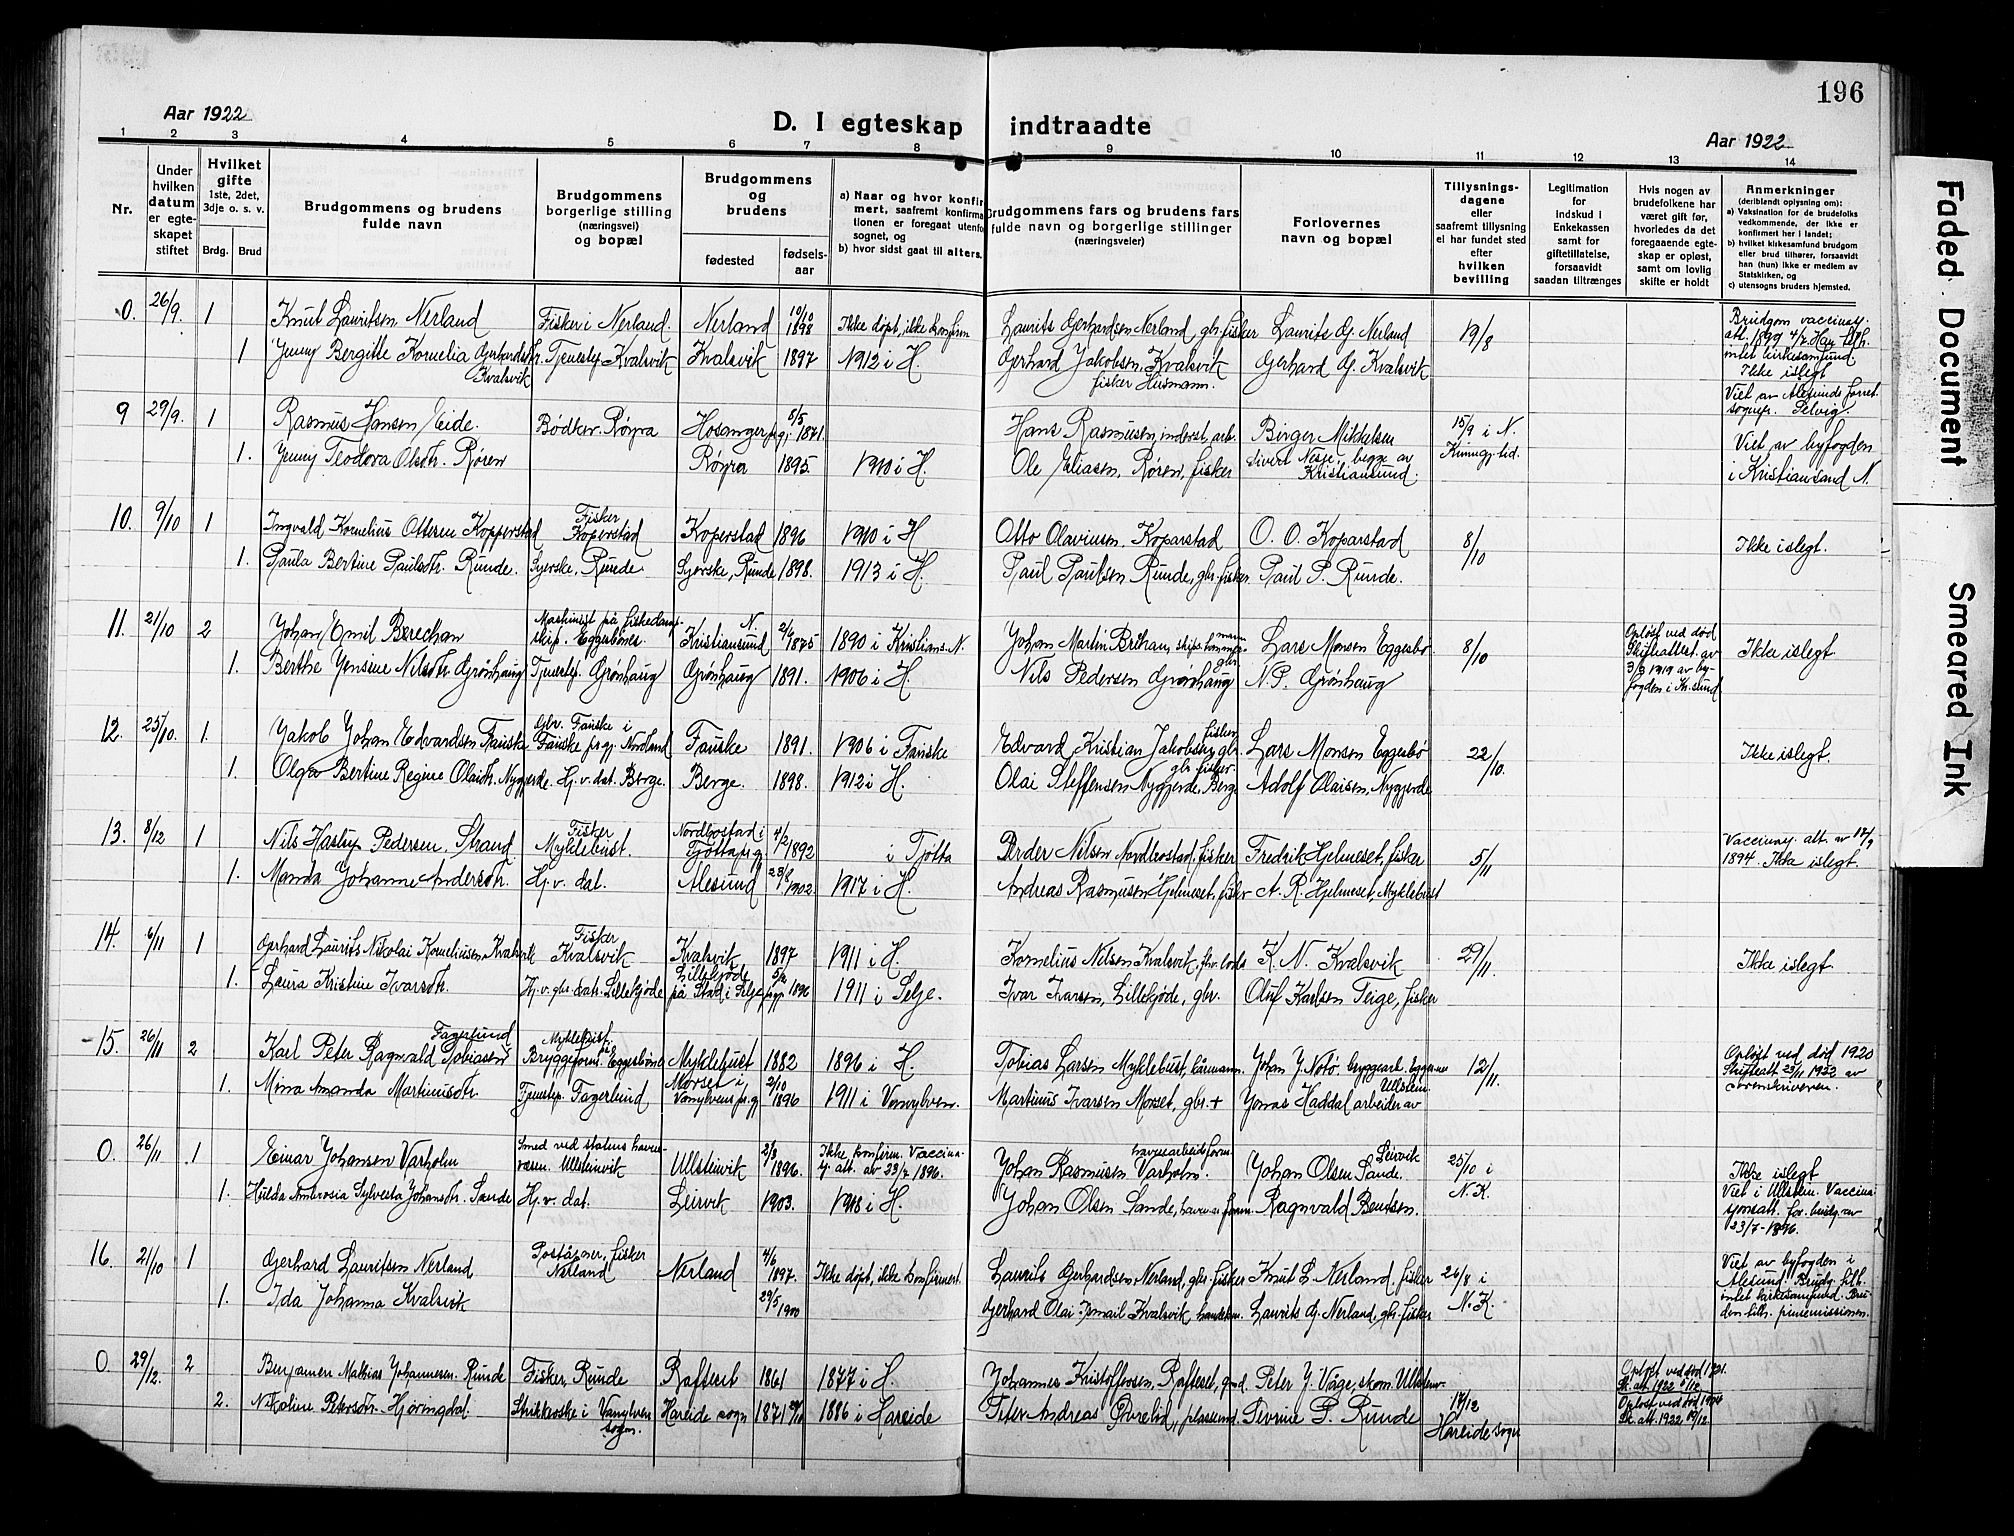 196
Aar 1922
D. I egteskap indtraadte
Aar 1922
1 2 3 4 5 6 7 8 9 10 11 12 13 14
Nr.
Under hvilken datum er egteskapet stiftet
Hvilket gifte 1ste, 2det, 3dje o. s. v.
Brdg. Brud
Brudgommens og brudens fulde navn
Brudgommens borgerlige stilling (næringsvei) og bopæl
Brudgommens og brudens
fødested
fødsels-aar
a) Naar og hvor konfirmert, saafremt konfirmationen er foregaat utenfor sognet, og
b) hvor sidst gaat til alters.
Brudgommens fars og brudens fars fulde navn og borgerlige stillinger (næringsveier)
Forlovernes navn og bopæl
Tillysnings-dagene eller saafremt tillysning ei har fundet sted efter hvilken bevilling
Legitimation for indskud i Enkekassen samt for giftetillatelse, forsaavidt saadan tiltrænges
Hvis nogen av brudefolkene har været gift før, hvorledes da det foregaaende egteskap er opløst, samt om lovlig skifte er holdt
Anmerkninger (deriblandt oplysning om):
a) Vaksination for de brudefolks vedkommende, der ikke er konfirmert her i landet;
b) hvilket kirkesamfund brudgom eller brud tilhører, forsaavidt han (hun) ikke er medlem av Statskirken, og
c) utensogns bruders hjemsted.
0. 26/9. 1 Knut Lauritsen Nerland Fisker i Nerland. Nerland 10/10 1898 Ikke døpt, ikke konfirm Laurits Gerhardsen Nerland, gbr. fisker Laurits G. Nerland 19/8 Brudgom vaccinasj. att. 1899 4/7 Han tilh. intet kirkesamfund. Ikke i slegt
1 Jenny Bergitte Kornelia Gerhardsdtr. Kvalsvik Tjenestep. Kvalsvik Kvalsvik 1897 1912 i H. Gerhard Jakobsen Kvalsvik fisker Husmann. Gerhard G. Kvalsvik Viet av Alesunds sorenskr.
9 29/9. 1 Rasmus Hansen Eide. Bødker. Røyra Hosanger pgj. 8/5 1871. Hans Rasmusen, inderst, arb. Birger Mikkelsen 15/9 i N. Viet av byfogden
1. Jenny Teodora Olsdtr. Røren Røyra 1895. 1910 i H. Ole Eliasen, Røren, fisker Sivert Nesje begge av Kristiansund. Kunngj. tid. i Kristiansand N.
10. 9/10 1 Ingvald Kornelius Ottesen Kopperstad Fisker Koperstad Koperstad 1896 1910 i H Otto Olavinsen. Koparstad O. O. Koparstad 8/10 Ikke i slegt.
1. Paula Bertine Paulsdtr. Runde. Syerske, Runde Syerske, Runde 1898. 1913 i H. Paul Paulsen Runde, gbr. fisker Paul P. Runde.
11. 21/10 2 Johan Emil Brechan Maskinist på fiskedampskip. Eggesbønes Kristiansund N. 2/9 1875 1890 i Kristians. N. Johan Martin Brechan, Lars Monsen Eggesbø 8/10 Opløst ved død Skifteattest. av 3/9 1919 av byfogden i Kr.sund Ikke i slegt
1. Berthe Jensine Nilsdtr Grønhaug Tjenestep. Grønhaug Grønhaug 1891. 1906 i H. Nils Pedersen Grønhaug gbr N. P. Grønhaug
12. 25/10. 1. Jakob Johan Edvardsen Fauske Gbr. Fauske i Fauske prgj. Nordland Fauske 1891. 1906 i Fauske Edvard Kristian Jakobsen gbr. fisker Lars Monsen Eggesbø 22/10. Ikke i slegt.
1. Olga Bertine Regine Olaisdtr. Nygjerde Hj. v. dat. Berge. Berge. 1898. 1912 i H. Olai Steffensen Nygjerde, Berge gbr fisker. Adolf Olaisen, Nygjerde
13. 8/12 1 Nils Hastup Pedersen. Strand Fisker Myklebust. Nordbostad i Tjøtta prgj 4/2 1892 i Tjøtta Peder Nilsen Nordbostad. fisker Fredrik Hjelmeset, fisker 5/11 Vaccinasj. att. av 17/9 1894. Ikke i slegt.
1. Manda Johanne Andersdtr. Hj. v. dat. Alesund 23/8 1902. 1917 i H. Andreas Rasmusen Hjelmeset, fisker A. R. Hjelmeset, Myklebust
14. 6/11 1 Gerhard Laurits Nikolai Korneliusen Kvalsvik Fisker Kvalsvik Kvalsvik 1897 1911 i H. Kornelius Nilsen Kvalsvik, K. N. Kvalsvik 29/11. Ikke i slegt.
1. Laura Kristine Ivarsdtr. Hj. v. gbr. datr. Lillekjøde Lillekjøde på Stad i Selje prgj. 5/2 1896 1911 i Selje. Ivar Ivarsen, Lillekjøde, gbr. Oluf Karlsen Teige, fisker
15. 26/11 2 Karl Peter Ragnvald Tobiasen Fagerlund Myklebust. Bryggeform. på Eggesbønes Myklebust 1882 1896 i H. Tobias Larsen Myklebust, kårmann. Johan J. Notø. bryggearb. Eggesnes 12/11. Opløst ved død 1920 Skifteatt 25/11 1922 av sorenskriveren.
1. Mina Amanda Martinusdtr. Tjenestep. Fagerlund Morset i Vanylven prgj 2/10 1896 1911 i Vanylven. Martinus Ivarsen Morset, gbr. + Jonas Haddal arbeider av Ullstein
0. 26/11 1 Einar Johansen Varholm Smed ved statens havnevæsen. Ullsteinvik Ullsteinvik 2/3 1896. Ikke konfirm. Vaccinasj. att. av 23/7 1896. Johan Rasmusen Varholm. havnearbeidsform Johan Olsen Sande. Leirvik 25/10 i N. K. Ikke i slegt Viet i Ullstein. Vaccinasjonsatt. for brudg. av 23/7-1896.
1. Hulda Ambrosia Sylvesta Johansdtr. Sande Hj. v. dat. Leirvik 1903. 1918 i H. Johan Olsen Sande, havnev. form. Ragnvald Bendsen.
16. 21/10 1 Gerhard Lauritsen Nerland Poståpner, fisker Nerland Nerland 4/6 1897. Ikke døpt, ikke konfirmert. Laurits Gerhardsen Nerland, gbr. fisker Knut L. Nerland. fisker 26/8 i N. K. Viet av byfogden i Alesund. Brudg. tilh. intet kirkesamfund. Bruden tilh. pinsemissionen.
1. Ida Johanna Kvalsvik 29/5 1900 Gerhard Olai Ismail Kvalsvik, handelsm. Laurits G Nerland, gbr. fisker
0. 29/12. 2 Benjamen Mathias Johannesen. Runde Fisker, Runde Rafteset 1861 1877 i H. Johannes Kristoffersen, Rafteset, gmd. Peter J. Våge, skom. Ullstein. 17/12 Hareide sogn Opløst ved død 1921. Sk. att. 1922 6/12
2. Nikoline Petersdtr. Hjøringdal. Strikkerske i Vanylven sogn. Hareide sogn 1871 1886 i Hareide Peter Andreas Øvrelid, plassmd. Severine P. Runde Opløst ved død Sk. att. 1922 19/12
Faded Document
Smeared Ink